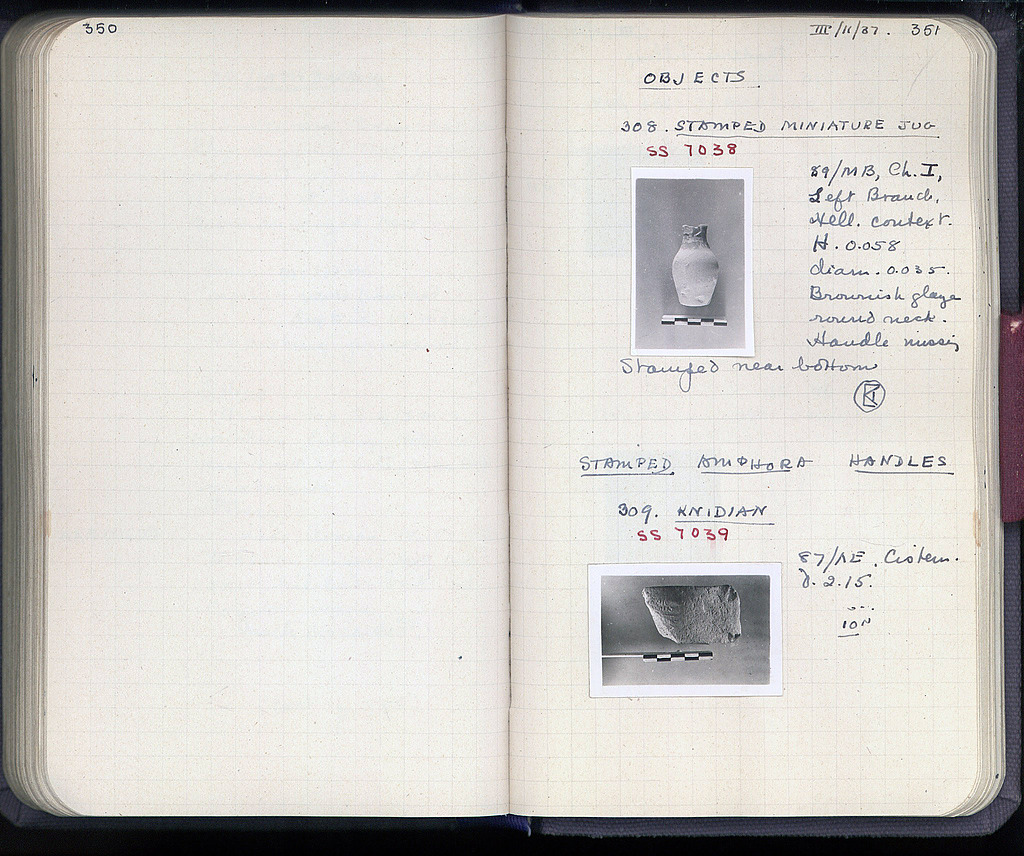 350
III/11/37. 351
OBJECTS
308. STAMPED MINIATURE JUG
SS 7038
89/MB, Ch. I,
Left Branch,
Hell. context.
H. 0.058
diam. 0.035.
Brownish glaze
round neck.
Handle missing
Stamped near bottom
STAMPED AMPHORA HANDLES
309. KNIDIAN
SS 7039
87/ΛΕ. Cistern.
D. 2.15.